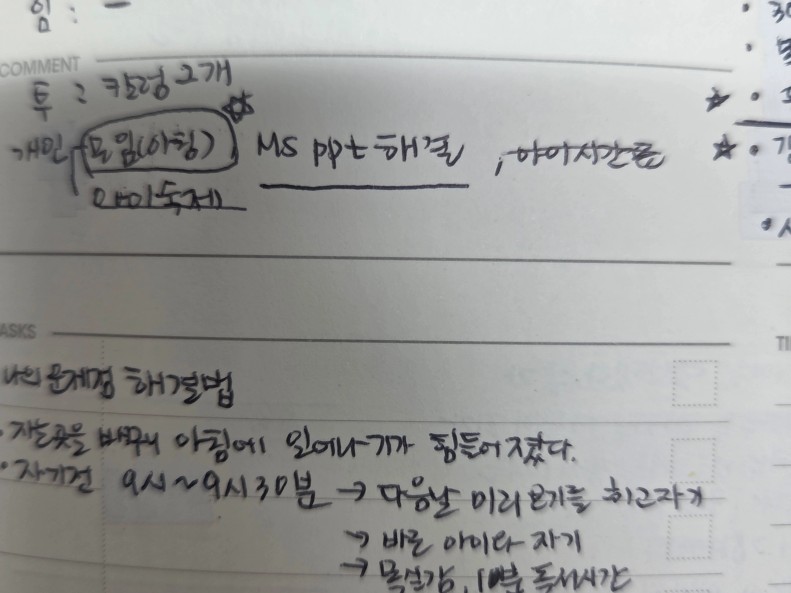 임 : -
COMMENT
투 : 칼럼 2개
개인 모임(아침) ☆ MS ppt 해결 , 아이시간표
아이숙제
ASKS
나의 문제점 해결법
· 자는곳을 바꾸니 아침에 일어나기가 힘들어졌다.
· 자기전 9시~9시30분 → 다음날 미리 하고자기
→ 바로 아이와 자기
→ 10분 독서시간
30
☆ ·
☆ ·
TI